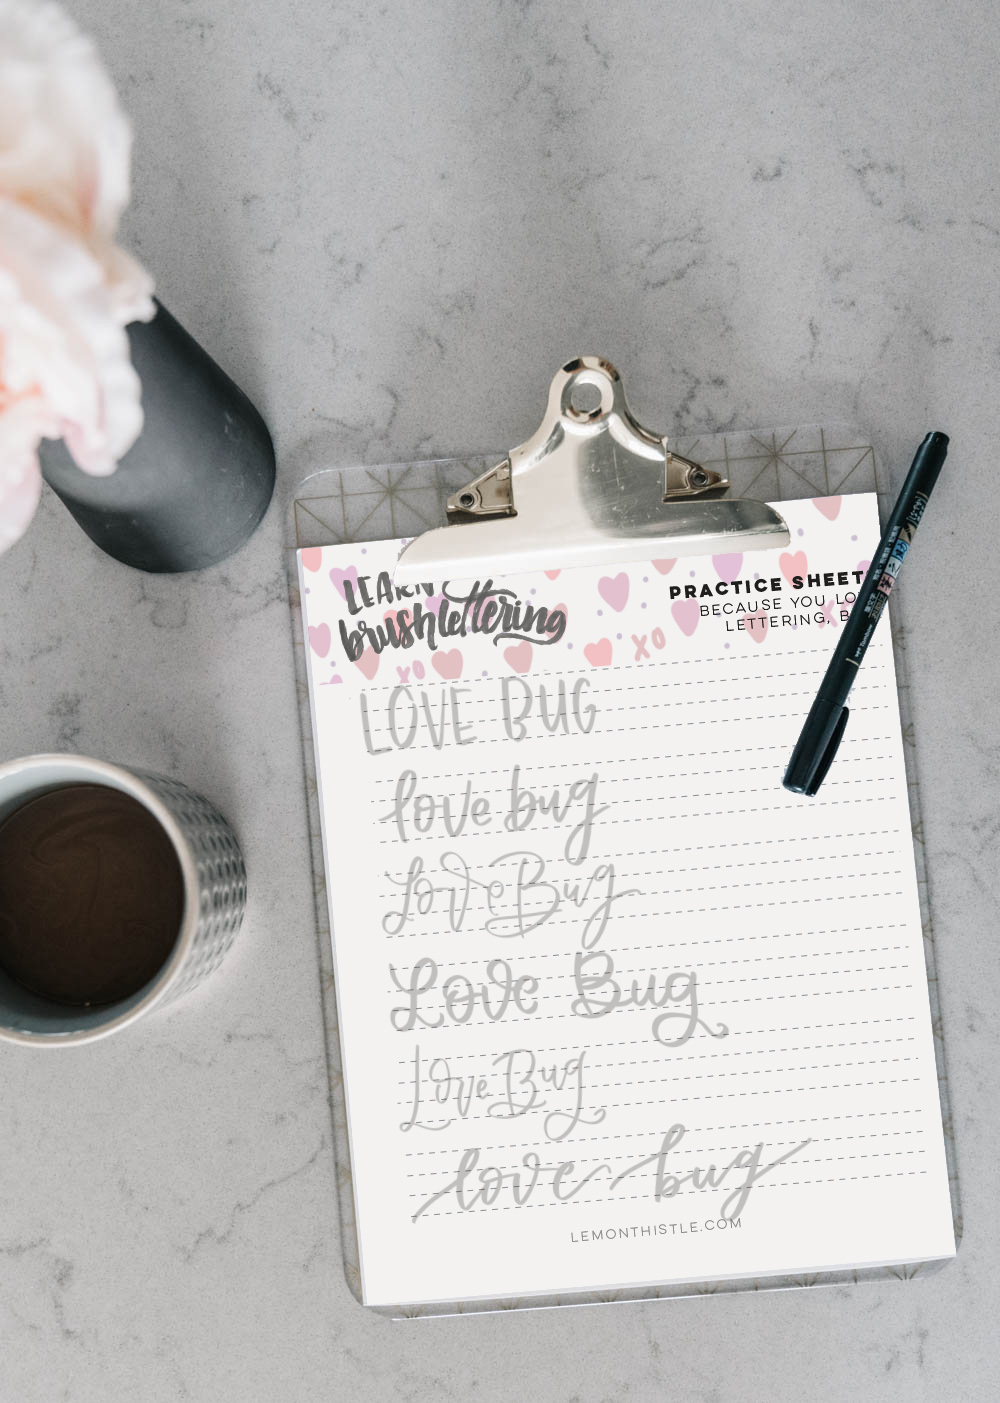 LEARN
brushlettering
PRACTICE SHEET
BECAUSE YOU LO
LETTERING, B
XO
XO
XO
LOVE BUG
love bug
Love Bug
Love Bug
Love Bug
love bug
LEMONTHISTLE.COM